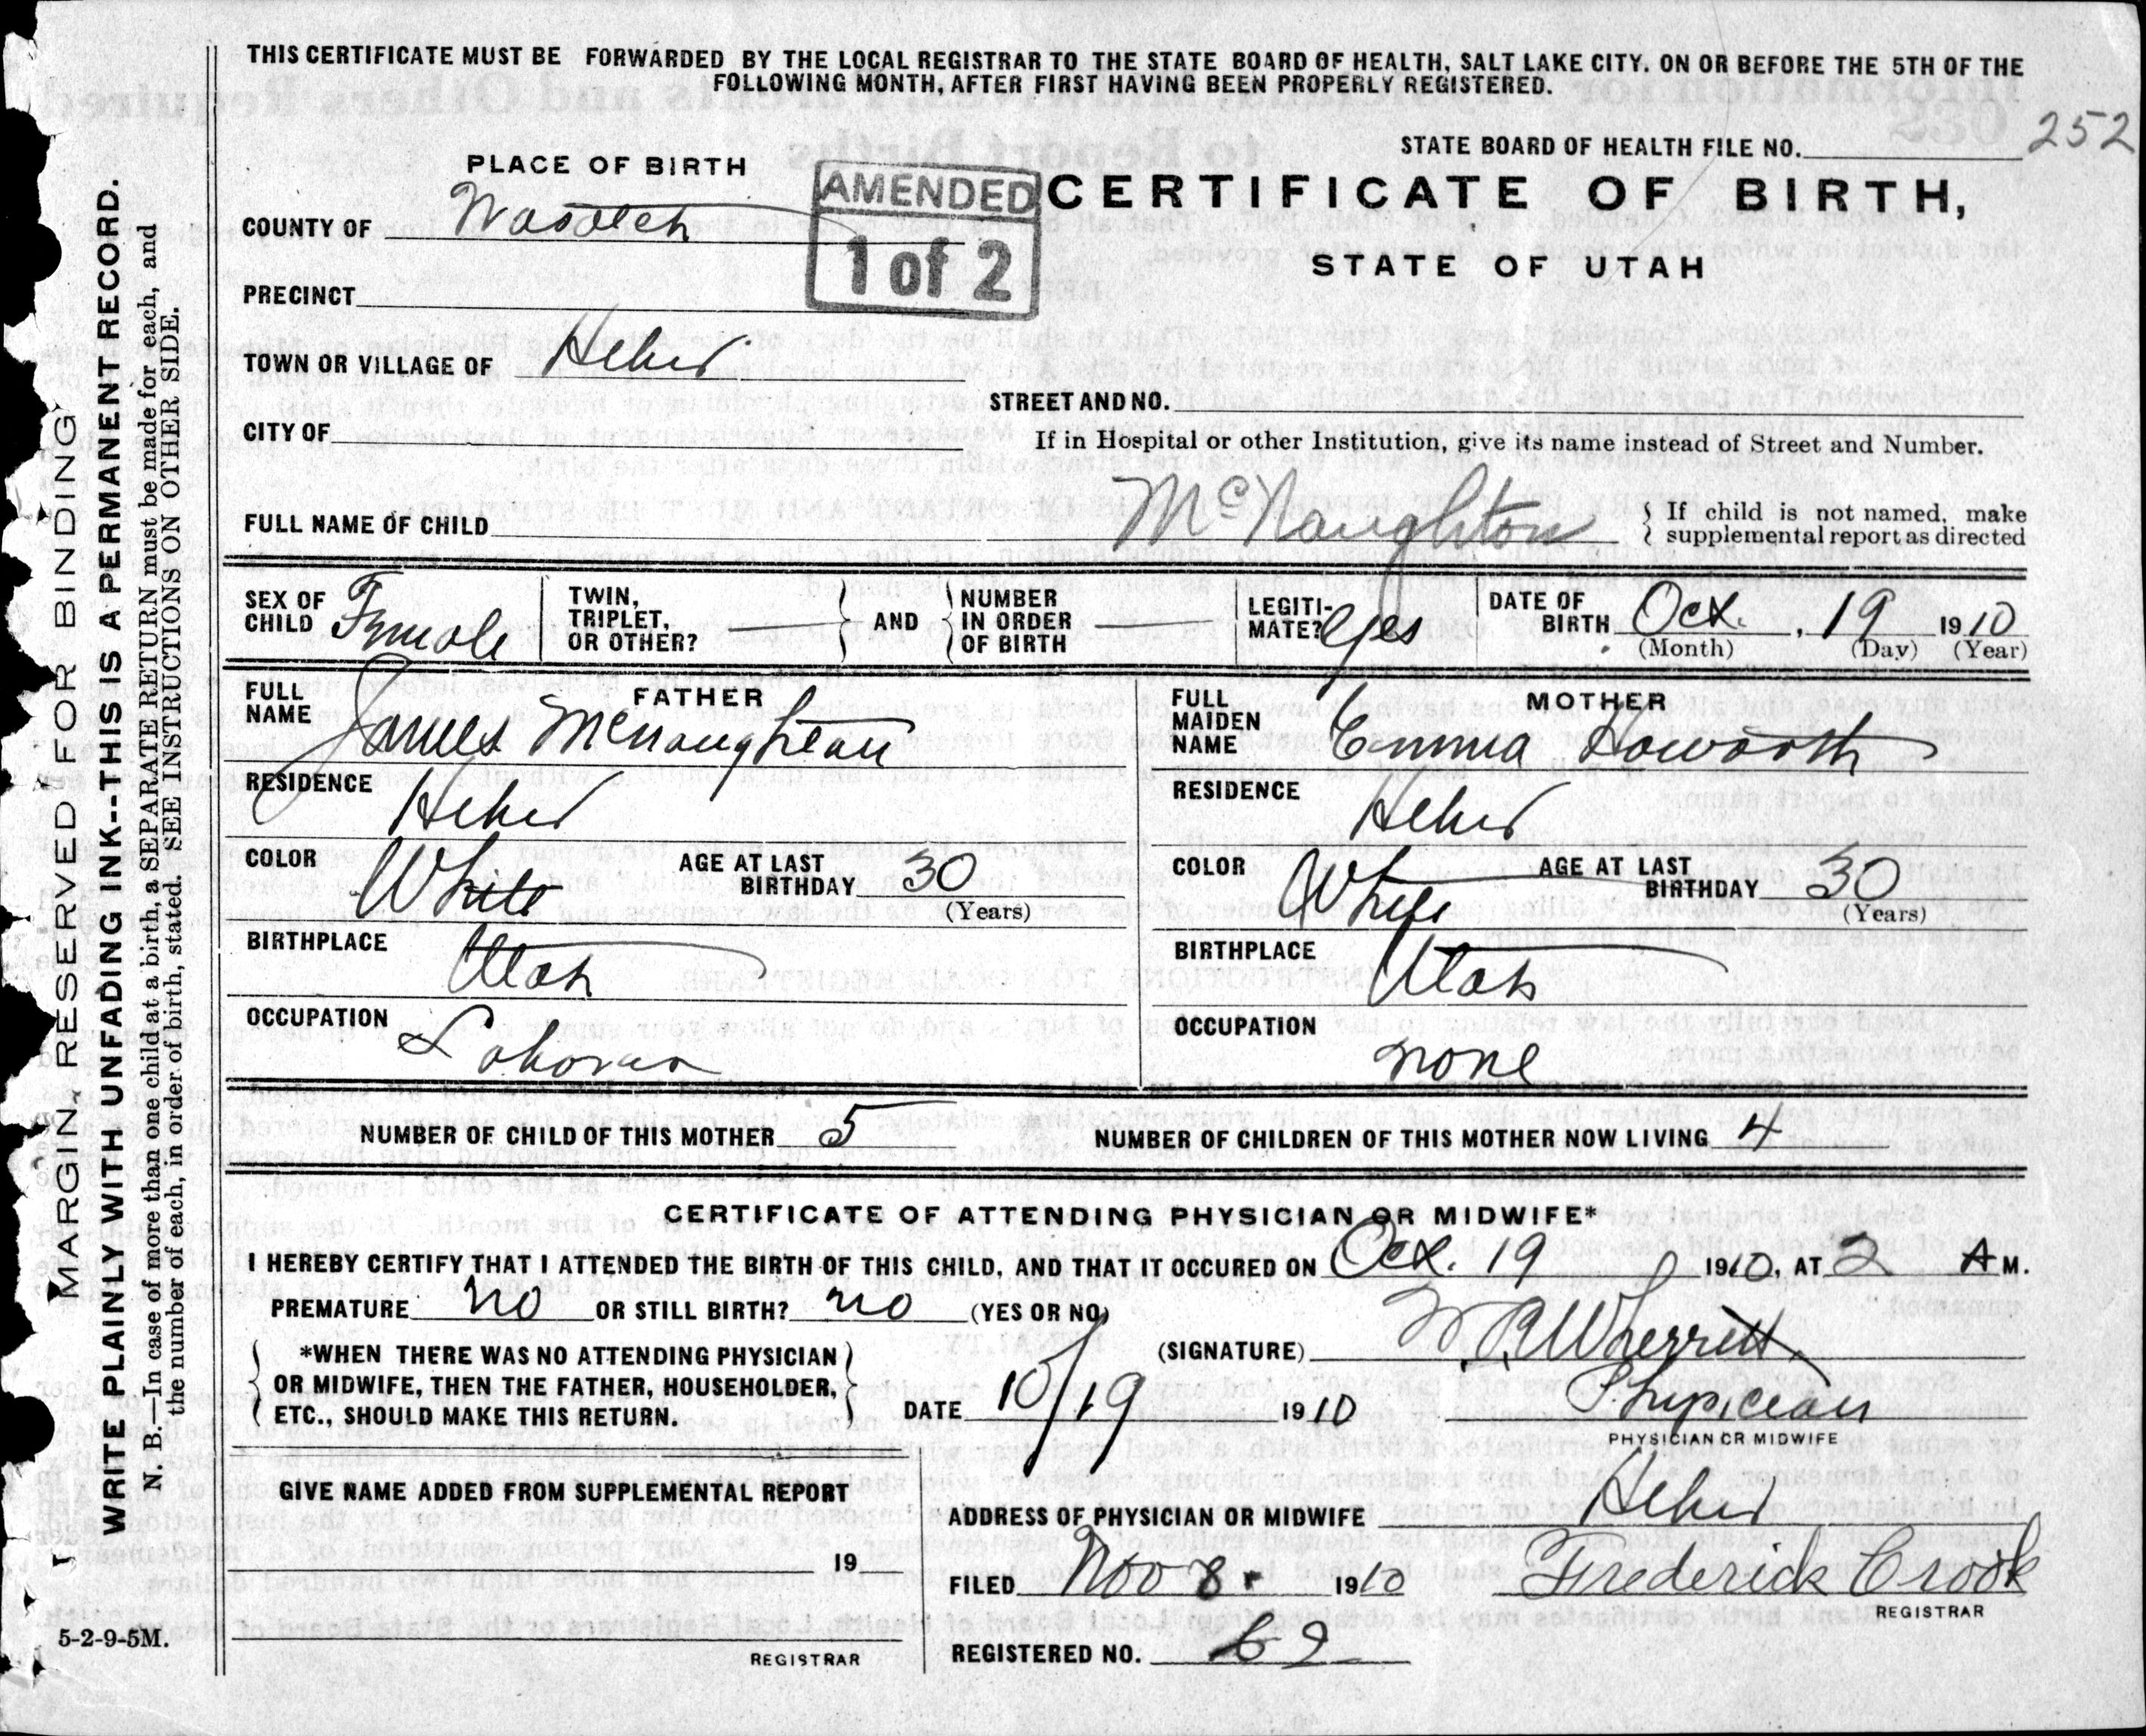 THIS CERTIFICATE MUST BE FORWARDED BY THE LOCAL REGISTRAR TO THE STATE BOARD OF HEALTH, SALT LAKE CITY. ON OR BEFORE THE 5TH OF THE
FOLLOWING MONTH, AFTER FIRST HAVING BEEN PROPERLY REGISTERED.
STATE BOARD OF HEALTH FILE NO. 252
PLACE OF BIRTH
AMENDED
1 of 2
CERTIFICATE OF BIRTH,
STATE OF UTAH
COUNTY OF Wasatch
PRECINCT
TOWN OR VILLAGE OF Heber
STREET AND NO.
CITY OF
If in Hospital or other Institution, give its name instead of Street and Number.
FULL NAME OF CHILD McNaughton
If child is not named, make
supplemental report as directed
SEX OF CHILD Female
TWIN, TRIPLET, OR OTHER? —
AND
NUMBER IN ORDER OF BIRTH —
LEGITIMATE? yes
DATE OF BIRTH Oct. 19 1910
(Month) (Day) (Year)
FATHER
FULL NAME James McNaughtan
RESIDENCE Heber
COLOR White AGE AT LAST BIRTHDAY 30
(Years)
BIRTHPLACE Utah
OCCUPATION Laborer
MOTHER
FULL MAIDEN NAME Emma Howorth
RESIDENCE Heber
COLOR White AGE AT LAST BIRTHDAY 30
(Years)
BIRTHPLACE Utah
OCCUPATION none
NUMBER OF CHILD OF THIS MOTHER 5 NUMBER OF CHILDREN OF THIS MOTHER NOW LIVING 4
CERTIFICATE OF ATTENDING PHYSICIAN OR MIDWIFE*
I HEREBY CERTIFY THAT I ATTENDED THE BIRTH OF THIS CHILD, AND THAT IT OCCURED ON Oct. 19 1910, AT 2 A M.
PREMATURE no OR STILL BIRTH? no (YES OR NO)
*WHEN THERE WAS NO ATTENDING PHYSICIAN
OR MIDWIFE, THEN THE FATHER, HOUSEHOLDER,
ETC., SHOULD MAKE THIS RETURN.
(SIGNATURE) W.R. Wherritt
DATE 10/19 1910 Physician
PHYSICIAN OR MIDWIFE
GIVE NAME ADDED FROM SUPPLEMENTAL REPORT
19
REGISTRAR
ADDRESS OF PHYSICIAN OR MIDWIFE Heber
FILED Nov 8. 1910 Frederick Crook
REGISTRAR
REGISTERED NO. 62
5-2-9-5M.
MARGIN RESERVED FOR BINDING
WRITE PLAINLY WITH UNFADING INK--THIS IS A PERMANENT RECORD.
N. B.—In case of more than one child at a birth, a SEPARATE RETURN must be made for each, and
the number of each, in order of birth, stated. SEE INSTRUCTIONS ON OTHER SIDE.